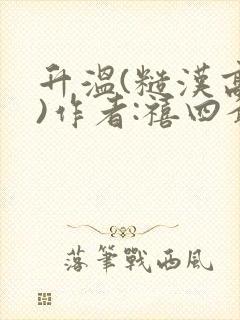 升溫(糙漢高
)作者:禧四
落筆戰西風